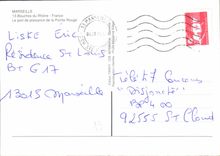 MARSEILLE
13-Bouches du Rhône - France
Le port de plaisance de la Pointe Rouge
LISKE Eric
Résidence St Louis
BT G17
13015 Marseille
Télé 7 Concours
"Disjoncté"
BP 400
92555 St Cloud